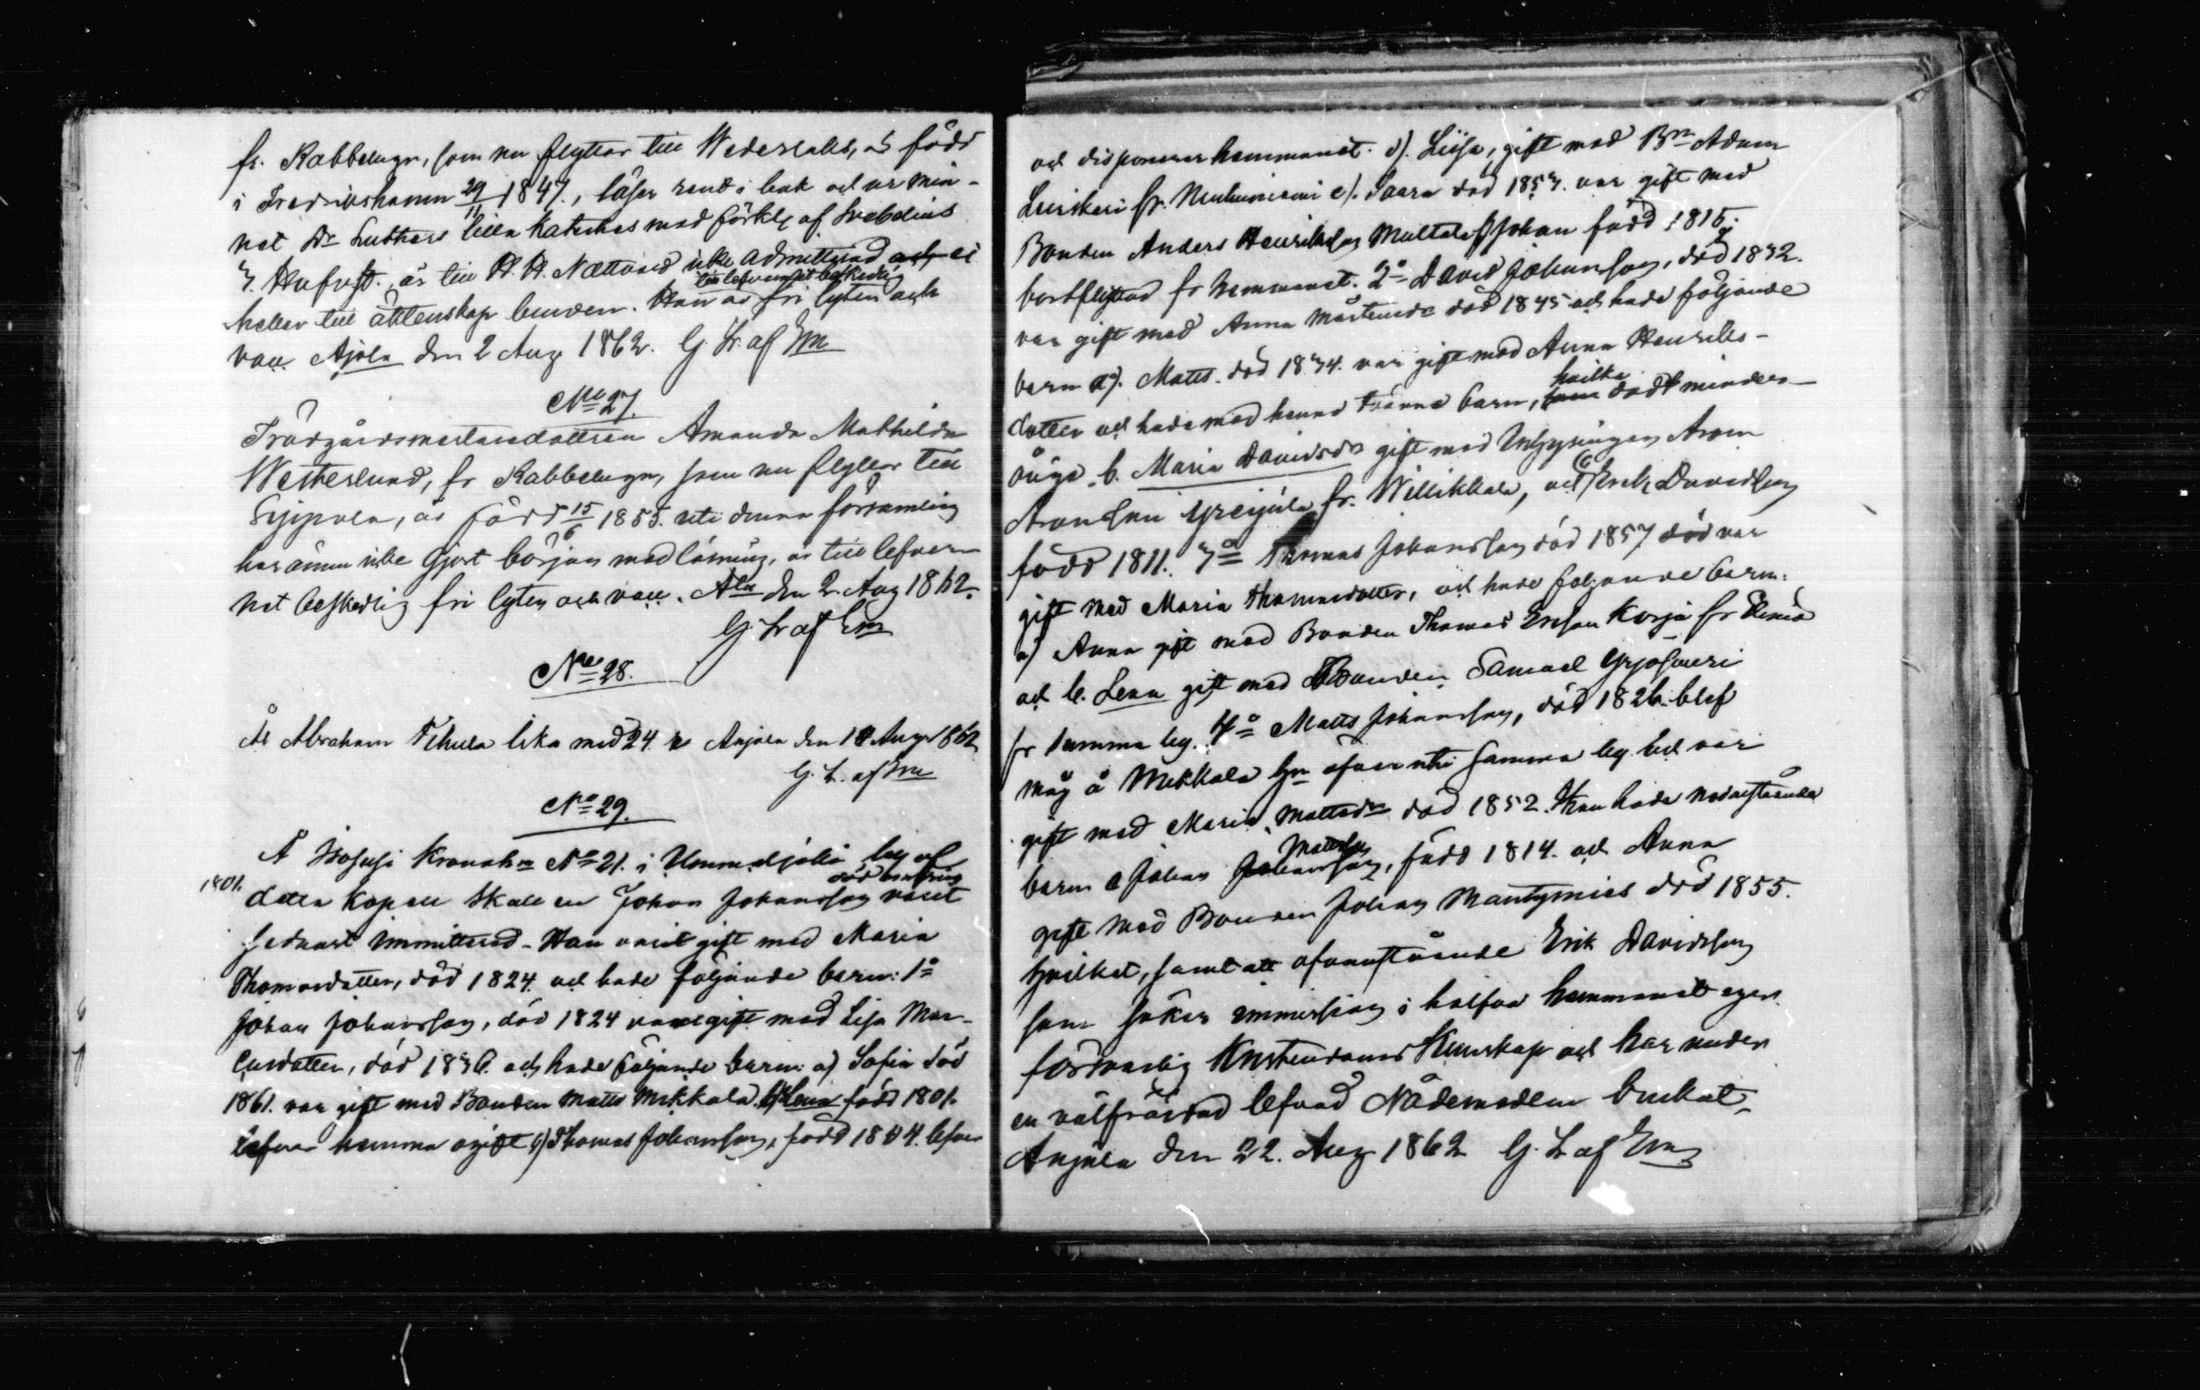 fr. Rabbelugn, som nu flyttar till Wederlaks, är född
i Fredrikshamn 29/11 1847, läser rent i bok och ur min-
net Dr Luthers lilla Katekes med förkl. af Svebelius
3. Hufvst. är till H. H. Nattvard icke admitterad och ei
till lefvernet beskedlig
heller till äktenskap bunden. Han är fri lyten och
vacc. Anjala den 2 Aug 1862. G. Lr af Em
No 27.
Trädgårdsmästaredottren Amanda Mathilda
Westerlund, fr Rabbelugn, som nu flyttar till
Sippola, är född 15/6 1855. uti denna församling
har ännu icke gjort början med läsning, är till lefver-
net beskedlig fri lyten och vacc. Ala den 2. Aug 1862.
G. Lr af Em
No 28.
Åt Abraham Tihula lika med 24. Anjala den 18 Aug 1862
G. L. af Em
No 29.
Å Kronohn No 21. i Ummeljoki by af
död omkring
1801. detta Kapell skall en Johan Johansson varit
sednast immitterad. Han varit gift med Maria
Thomasdotter, död 1824. och hade följande barn: 1o
Johan Johansson, död 1824 varit gift med Lisa Mar-
cusdotter, död 1836. och hade följande barn: a) Sofia död
1861. var gift med Bonden Matts Mikkola. b) Lena född 1801.
lefver hemma ogift c) Thomas Johansson, född 1804. lefver
och disponerar hemmanet. d). Liisa, gift med Bn Adam
Leirikari fr. e). Saara död 1853. var gift med
Bonden Anders Henriksson Multala f) Johan född 1815.
bortflyttad fr hemmanet. 2o David Johansson, död 1832.
var gift med Anna Mårtensdr död 1845 och hade följande
barn a). Matts. död 1834. var gift med Anna Henriks-
hvilka
dotter och hade med henne tvänne barn, som dödt minder-
åriga. b. Maria Davidsdr gift med Inhysingen Aron
Aronsson fr. Willikkala, och c) Erik Davidsson
född 1811. 3o Thomas Johansson död 1857 död var
gift med Maria Thomasdotter, och hade följande barn:
a) Anna gift med Bonden Thomas Ersson Korja fr Elimä
och b. Lena gift med Bonden Samuel Yrjösuuri
fr samma by. 4o Matts Johansson, död 1826. blef
måg å Mikkola hn äfven uti samma by och var
gift med Maria Mattsdr död 1852. Han hade nedanstående
Mattsson
barn Johan Johansson, född 1814. och Anna
gift med Bonden Johan Mantymies död 1855.
Hvilket, samt att ofvanstående Erik Davidsson
som söker immission i halfva hemmanet eger
försvarlig Kristendoms Kunskap och har under
en välfräjdad lefnad Nådemedlen bruk̃at,
Anjala den 22. Aug 1862 G. Lr af Em